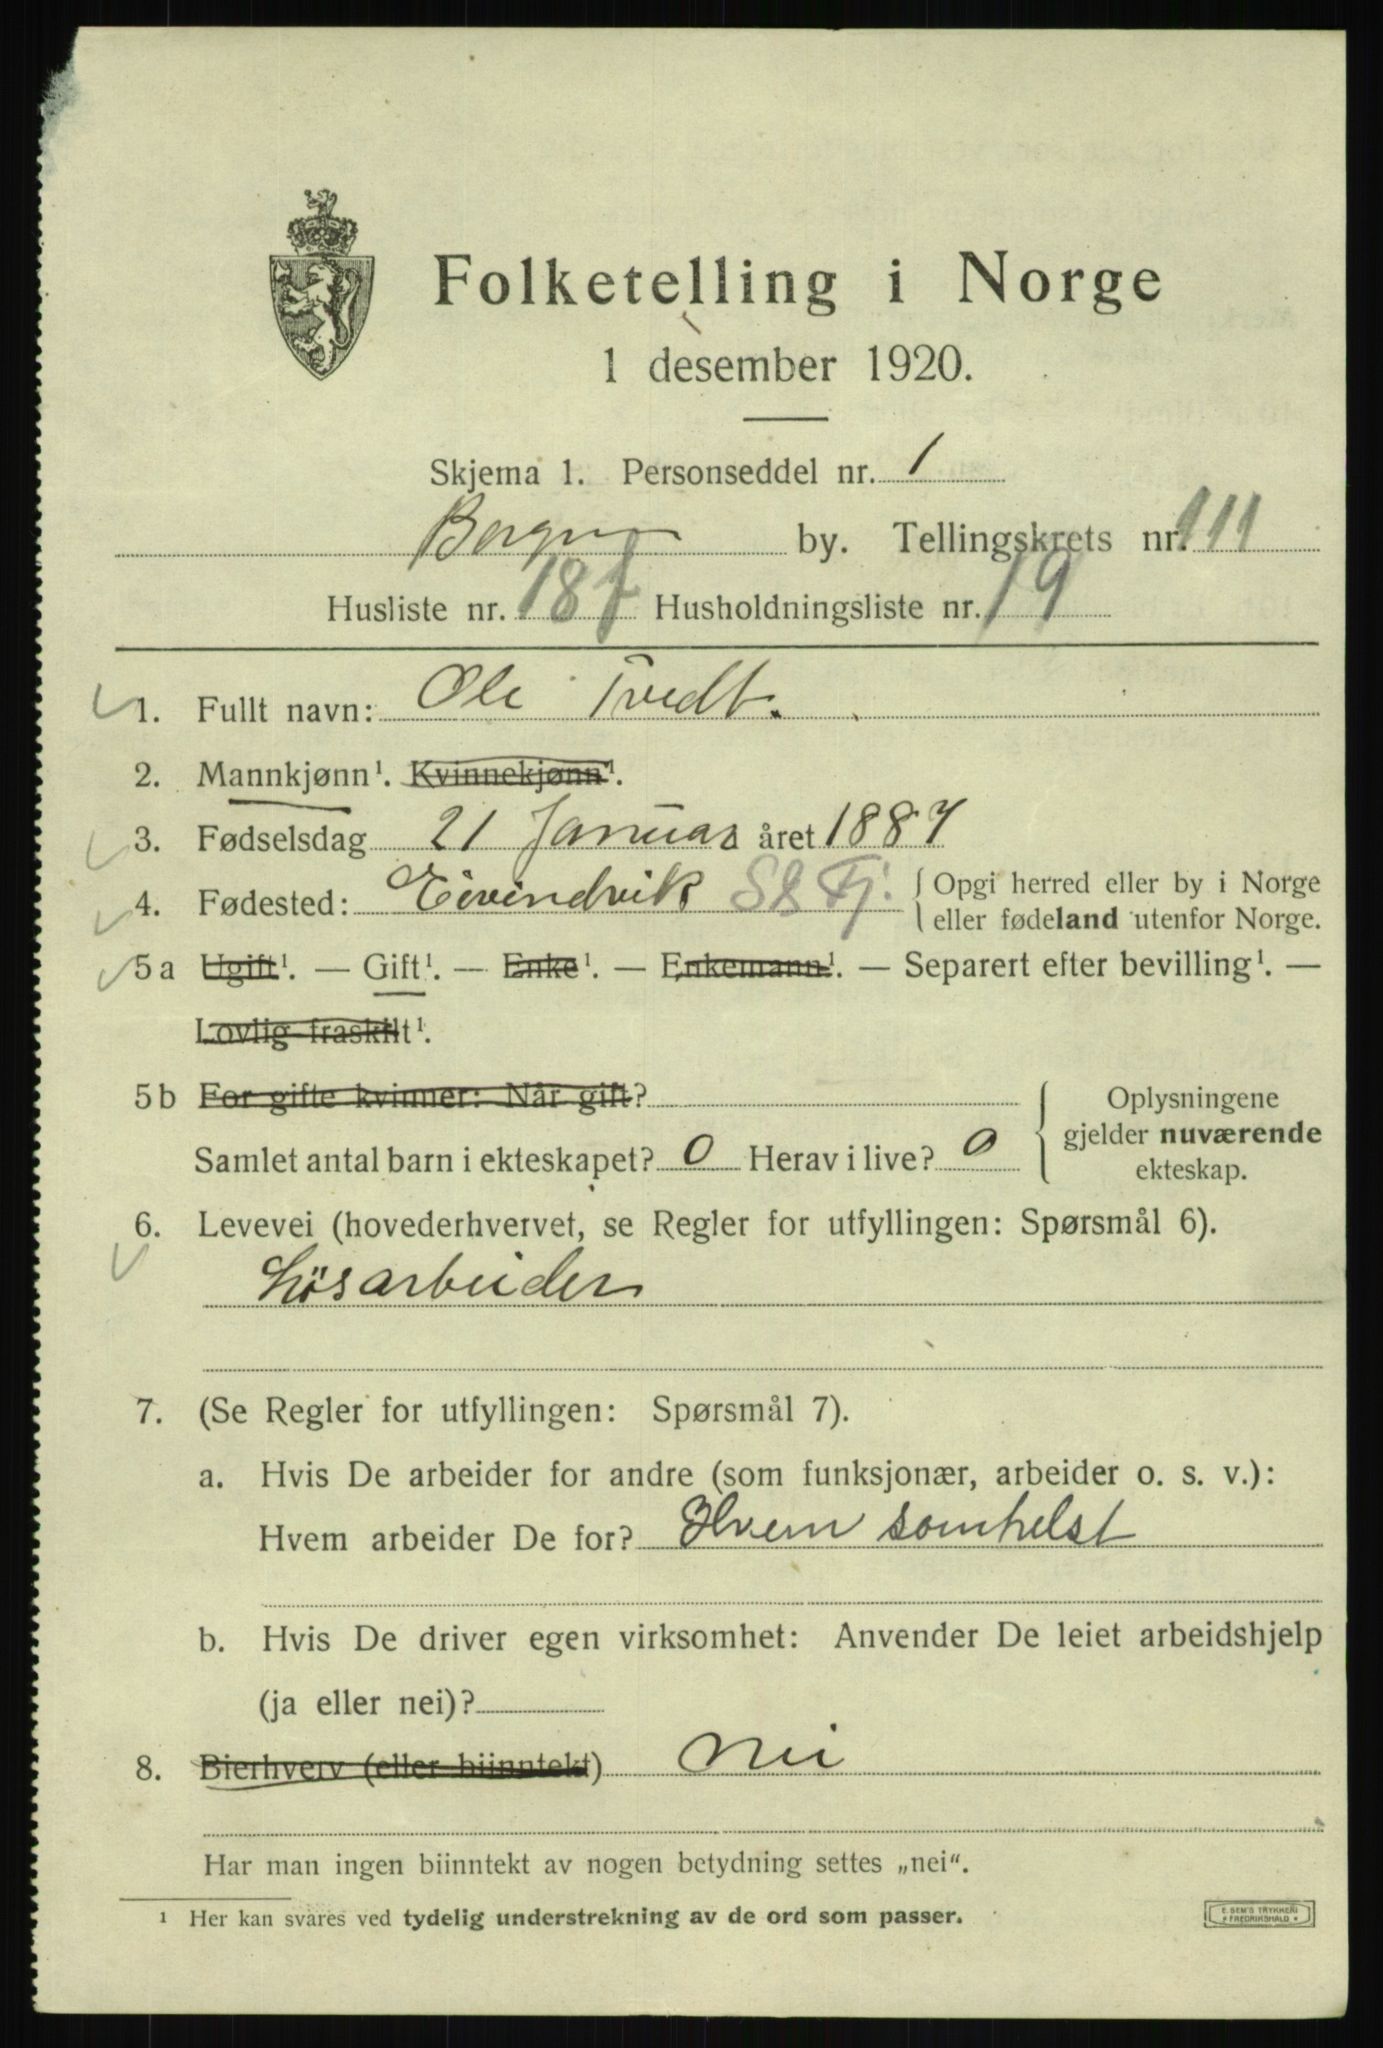 Folketelling i Norge
1 desember 1920.
Skjema 1. Personseddel nr. 1
Bergen by. Tellingskrets nr. 111
Husliste nr. 18 Husholdningsliste nr. 19
1. Fullt navn: Ole Tvedt.
2. Mannkjønn¹. Kvinnekjønn¹.
3. Fødselsdag 21 Januar året 1887
4. Fødested: Eivindvik S&Fj. Opgi herred eller by i Norge
eller fødeland utenfor Norge.
5a Ugift¹. — Gift¹. — Enke¹. — Enkemann¹. — Separert efter bevilling¹. —
Lovlig fraskilt¹.
5b For gifte kvinner: Når gift?
Samlet antal barn i ekteskapet? 0 Herav i live? 0
Oplysningene
gjelder nuværende
ekteskap.
6. Levevei (hovederhvervet, se Regler for utfyllingen: Spørsmål 6).
Løsarbeider
7. (Se Regler for utfyllingen: Spørsmål 7).
a. Hvis De arbeider for andre (som funksjonær, arbeider o. s. v.):
Hvem arbeider De for? Hvem somhelst
b. Hvis De driver egen virksomhet: Anvender De leiet arbeidshjelp
(ja eller nei)?
8. Bierhverv (eller biinntekt) Nei
Har man ingen biinntekt av nogen betydning settes „nei“.
¹ Her kan svares ved tydelig understrekning av de ord som passer.
E. SEM'S TRYKKERI
FREDRIKSHALD